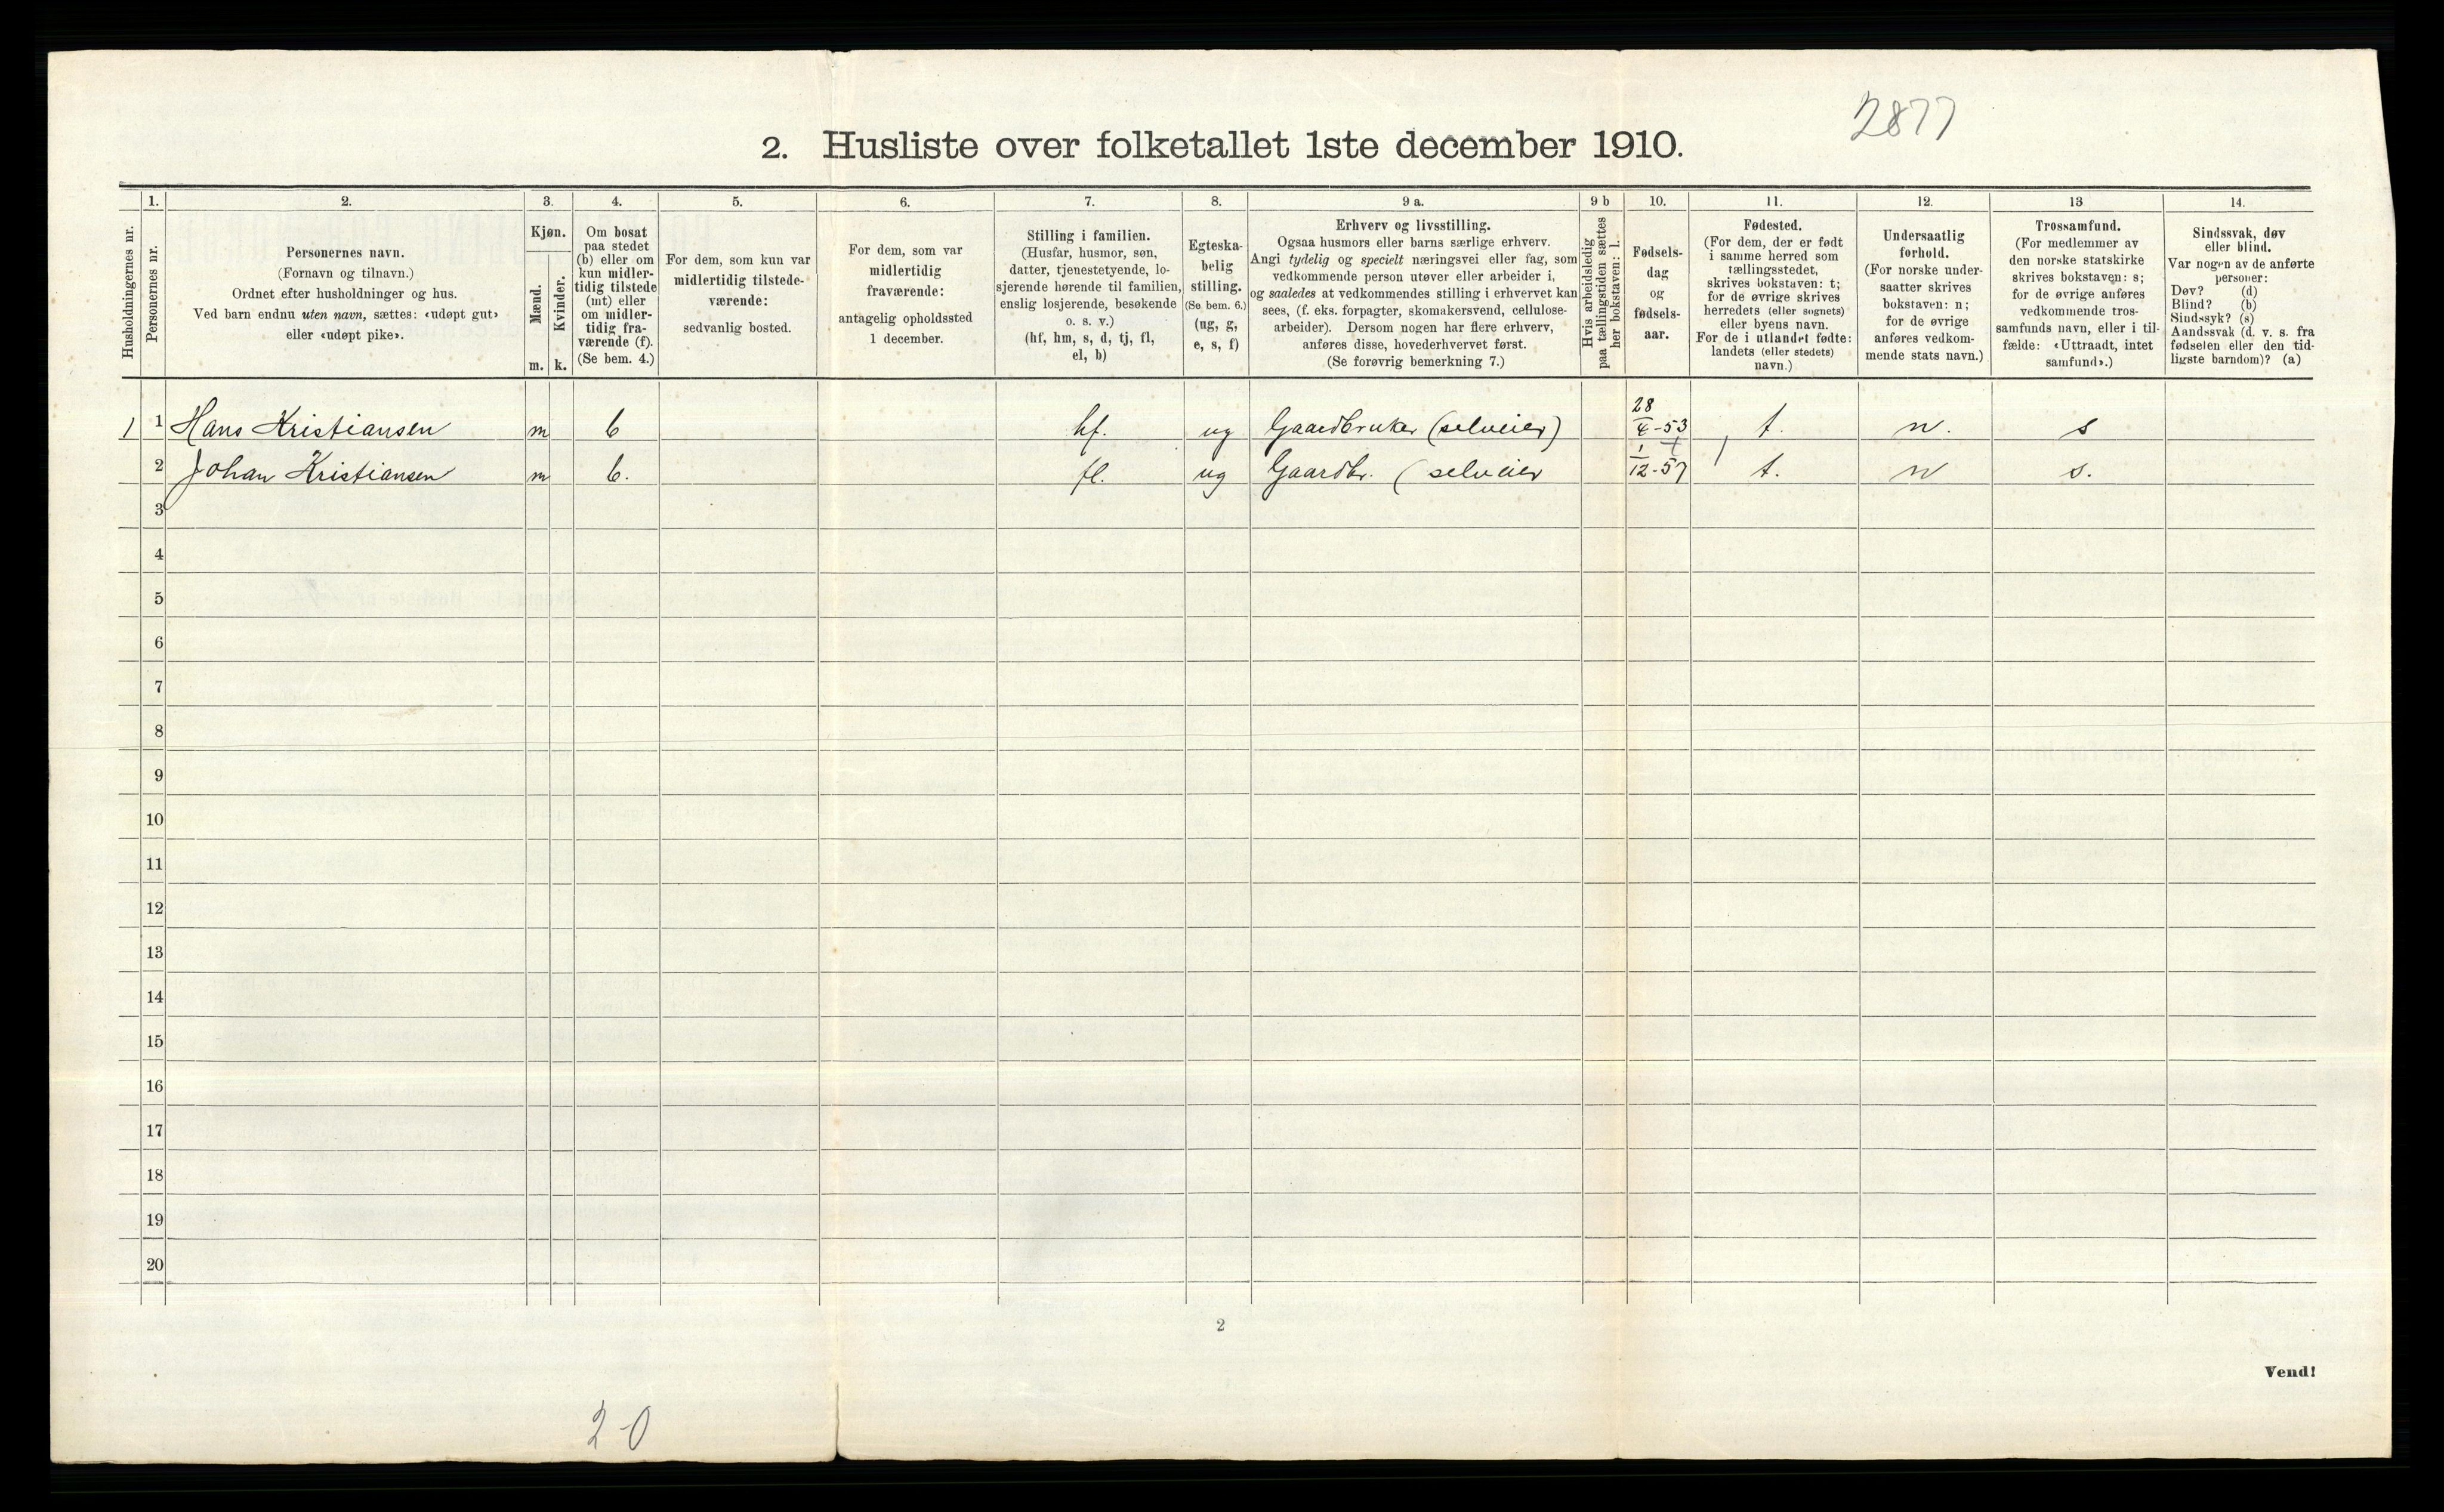 2877
2. Husliste over folketallet 1ste december 1910.
1. 2. 3. 4. 5. 6. 7. 8. 9 a. 9 b 10. 11. 12. 13 14.
Husholdningernes nr.
Personernes nr.
Personernes navn.
(Fornavn og tilnavn.)
Ordnet efter husholdninger og hus.
Ved barn endnu uten navn, sættes: «udøpt gut»
eller «udøpt pike».
Kjøn.
Mænd.
Kvinder.
m. k.
Om bosat
paa stedet
(b) eller om
kun midler-
tidig tilstede
(mt) eller
om midler-
tidig fra-
værende (f).
(Se bem. 4.)
For dem, som kun var
midlertidig tilstede-
værende:
sedvanlig bosted.
For dem, som var
midlertidig
fraværende:
antagelig opholdssted
1 december.
Stilling i familien.
(Husfar, husmor, søn,
datter, tjenestetyende, lo-
sjerende hørende til familien,
enslig losjerende, besøkende
o. s. v.)
(hf, hm, s, d, tj, fl,
el, b)
Egteska-
belig
stilling.
(Se bem. 6.)
(ug, g,
e, s, f)
Erhverv og livsstilling.
Ogsaa husmors eller barns særlige erhverv.
Angi tydelig og specielt næringsvei eller fag, som
vedkommende person utøver eller arbeider i,
og saaledes at vedkommendes stilling i erhvervet kan
sees, (f. eks. forpagter, skomakersvend, cellulose-
arbeider). Dersom nogen har flere erhverv,
anføres disse, hovederhvervet først.
(Se forøvrig bemerkning 7.)
Hvis arbeidsledig
paa tællingstiden sættes
her bokstaven: l.
Fødsels-
dag
og
fødsels-
aar.
Fødested.
(For dem, der er født
i samme herred som
tællingsstedet,
skrives bokstaven: t;
for de øvrige skrives
herredets (eller sognets)
eller byens navn.
For de i utlandet fødte:
landets (eller stedets)
navn.)
Undersaatlig
forhold.
(For norske under-
saatter skrives
bokstaven: n;
for de øvrige
anføres vedkom-
mende stats navn.)
Trossamfund.
(For medlemmer av
den norske statskirke
skrives bokstaven: s;
for de øvrige anføres
vedkommende tros-
samfunds navn, eller i til-
fælde: «Uttraadt, intet
samfund».)
Sindssvak, døv
eller blind.
Var nogen av de anførte
personer:
Døv? (d)
Blind? (b)
Sindssyk? (s)
Aandssvak (d. v. s. fra
fødselen eller den tid-
ligste barndom)? (a)
1 1 Hans Kristiansen m b hf. ug Gaardbruker (selveier) 28/4-53 t. n. s
2 Johan Kristiansen m b. fl. ug Gaardbr. (selveier 1/12-57 t. n s.
3
4
5
6
7
8
9
10
11
12
13
14
15
16
17
18
19
20
2
Vend!
2-0